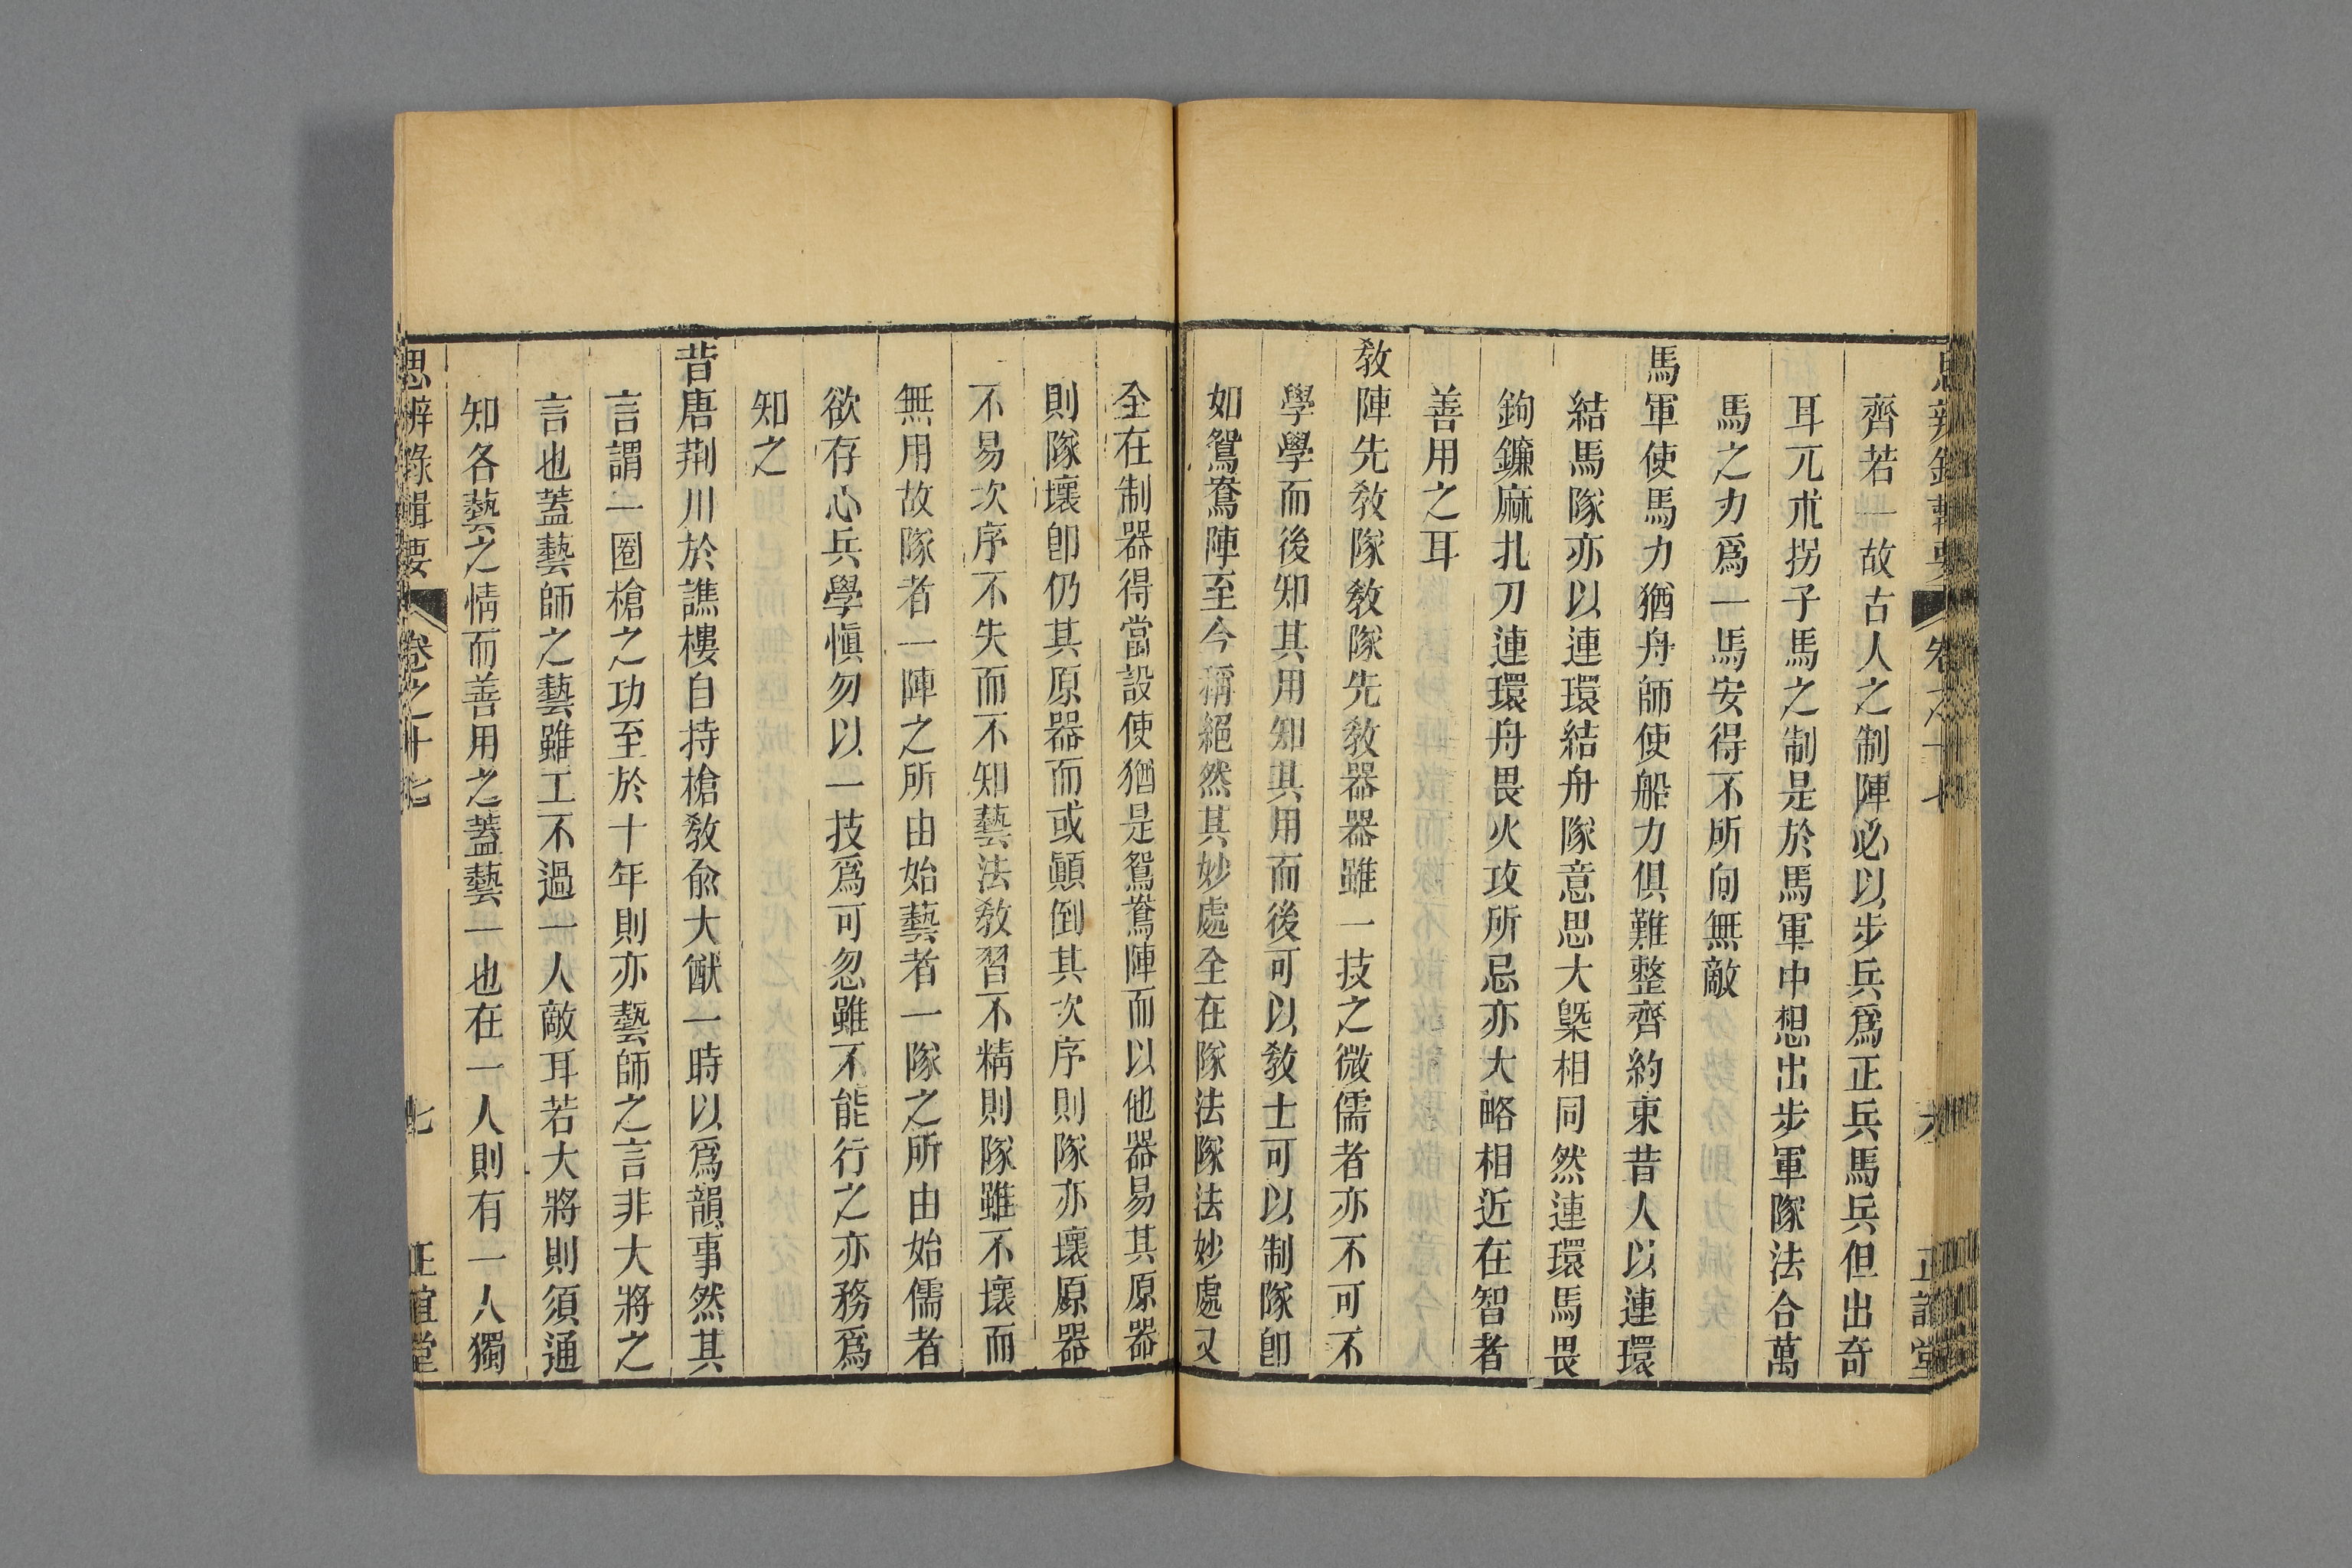 思辨錄輯要 卷之十七 六 正誼堂
齊若一故古人之制陣必以步兵爲正兵馬兵但出奇
耳兀朮拐子馬之制是於馬軍中想出步軍隊法合萬
馬之力爲一馬安得不所向無敵
馬軍使馬力猶舟師使船力俱難整齊約束昔人以連環
結馬隊亦以連環結舟隊意思大槩相同然連環馬畏
鉤鐮麻扎刀連環舟畏火攻所忌亦大略相近在智者
善用之耳
敎陣先敎隊敎隊先敎器器雖一技之微儒者亦不可不
學學而後知其用知其用而後可以敎士可以制隊卽
如鴛鴦陣至今稱絕然其妙處全在隊法隊法妙處又
全在制器得當設使猶是鴛鴦陣而以他器易其原器
則隊壞卽仍其原器而或顚倒其次序則隊亦壞原器
不易次序不失而不知藝法敎習不精則隊雖不壞而
無用故隊者一陣之所由始藝者一隊之所由始儒者
欲存心兵學愼勿以一技爲可忽雖不能行之亦務爲
知之
昔唐荆川於譙樓自持槍敎俞大猷一時以爲韻事然其
言謂一圈槍之功至於十年則亦藝師之言非大將之
言也蓋藝師之藝雖工不過一人敵耳若大將則須通
知各藝之情而善用之蓋藝一也在一人則有一人獨
思辨錄輯要 卷之十七 七 正誼堂